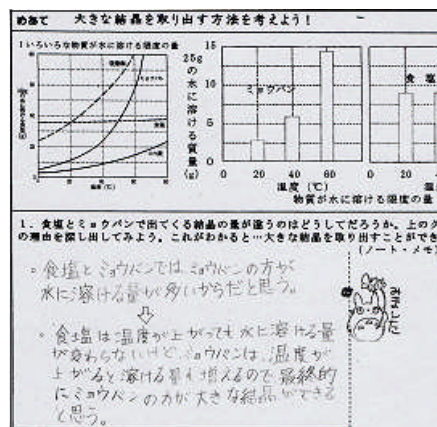 めあて 大きな結晶を取り出す方法を考えよう！
Iいろいろな物質が水に溶ける限度の量
ミョウバン
食塩
温度(℃)
25gの水に溶ける質量(g)
15
10
5
0
ミョウバン
20 40 60
温度 (℃)
食塩
20
物質が水に溶ける限度の量
1．食塩とミョウバンで出てくる結晶の量が違うのはどうしてだろうか。上のグ
の理由を探し出してみよう。これがわかると…大きな結晶を取り出すことができ
(ノート・メモ)
。食塩とミョウバンでは、ミョウバンの方が
水に溶ける量が多いからだと思う。
⇩
。食塩は温度が上がっても水に溶ける量
が変わらないけど、ミョウバンは、温度が
上がると溶ける量も増えるので最終的
にミョウバンの方が大きな結晶ができる
と思う。
みました